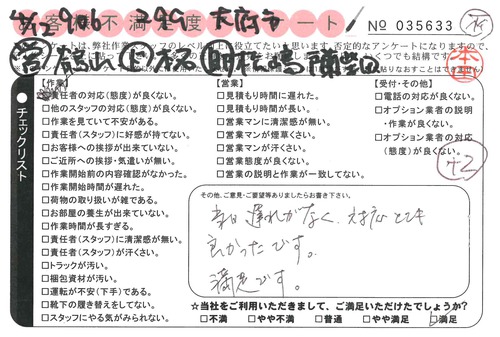 お客様不満足度アンケート
№ 035633
本
【作業】
□責任者の対応(態度)が良くない。
□他のスタッフの対応(態度)が良くない。
□作業を見ていて不安がある。
□責任者(スタッフ)に好感が持てない。
□お客様への挨拶が出来ていない。
□ご近所への挨拶・気遣いが無い。
□作業開始前の内容確認がなかった。
□作業開始時間が遅れた。
□荷物の取り扱いが雑である。
□お部屋の養生が出来ていない。
□作業時間が長すぎる。
□責任者(スタッフ)に清潔感が無い。
□責任者(スタッフ)が汗くさい。
□トラックが汚い。
□梱包資材が汚い。
□運転が不安(下手)である。
□靴下の履き替えをしてない。
□スタッフにやる気がみられない。
【営業】
□見積もり時間に遅れた。
□見積もり時間が長い。
□営業マンに清潔感が無い。
□営業マンが煙草くさい。
□営業マンが汗くさい。
□営業態度が良くない。
□営業の説明と作業が一致してない。
【受付・その他】
□電話の対応が良くない。
□オプション業者の説明
・作業が良くない。
□オプション業者の対応
(態度)が良くない。
チェックリスト
その他、ご意見・ご要望等ありましたらお書き下さい。
当日遅れがなく、対応とても
良かったです。
満足です。
☆当社をご利用いただきまして、ご満足いただけたでしょうか?
□不満 □やや不満 □普通 □やや満足 □満足